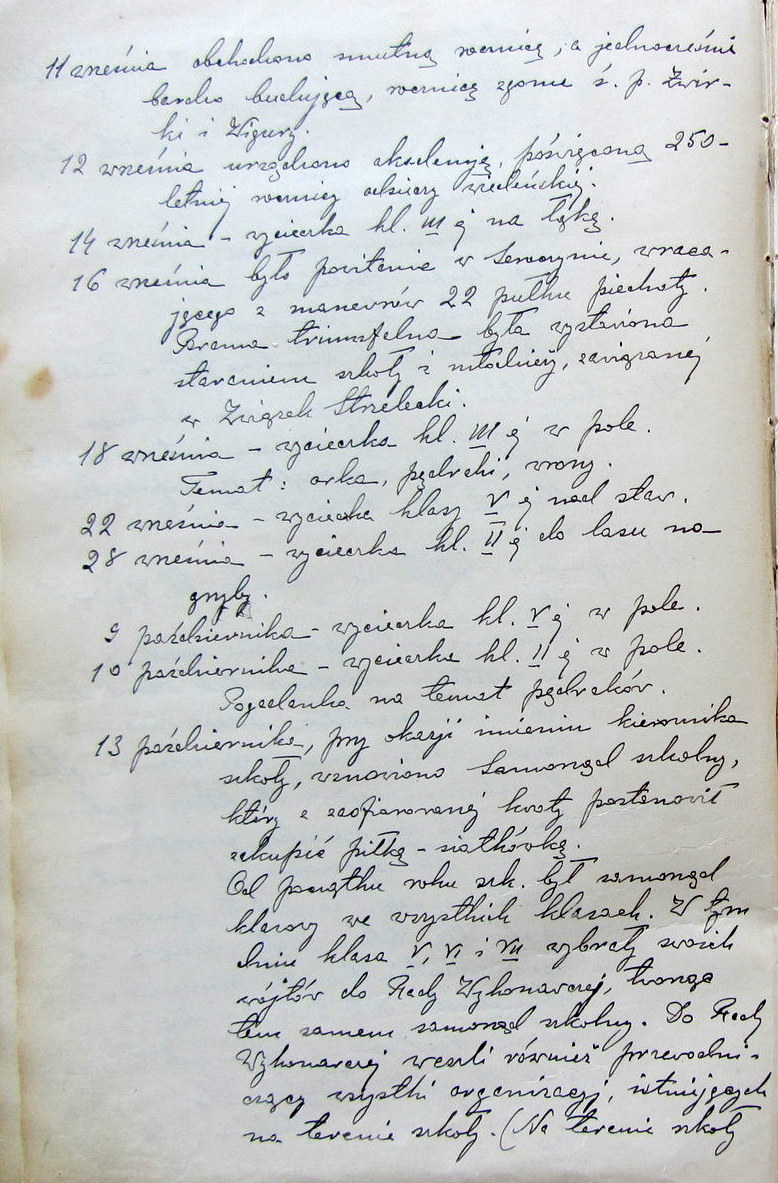 11 września obchodzono smutną rocznicę, a jednocześnie
bardzo budującą, rocznicę zgonu ś. p. Żwir-
ki i Wigury.
12 września urządzono akademję, poświęconą 250-
letniej rocznicy odsieczy wiedeńskiej.
14 września - wycieczka kl. III ej na łąkę.
16 września było powitanie w Seroczynie, wraca-
jącego z manewrów 22 pułku piechoty.
Brama triumfalna była wystawiona
staraniem szkoły i młodzieży, związanej
w Związek Strzelecki.
18 września - wycieczka kl. III ej w pole.
Temat: orka, pędraki, wrony.
22 września - wycieczka klasy V ej nad staw.
28 września - wycieczka kl. II ej do lasu na
grzyby.
9 października - wycieczka kl. V ej w pole.
10 października - wycieczka kl. II ej w pole.
Pogadanka na temat pędraków.
13 października, przy okazji imienin kierownika
szkoły, wznowiono Samorząd szkolny,
który z zaofiarowanej kwoty postanowił
zakupić piłkę - siatkówkę.
Od początku roku szk. był samorząd
klasowy we wszystkich klasach. W tym
dniu klasa V, VI i VII wybrały swoich
wójtów do Rady Wykonawczej, tworząc
tem samem samorząd szkolny. Do Rady
Wykonawczej weszli również przewodni-
czący wszystki organizacyj, istniejących
na terenie szkoły. (Na terenie szkoły